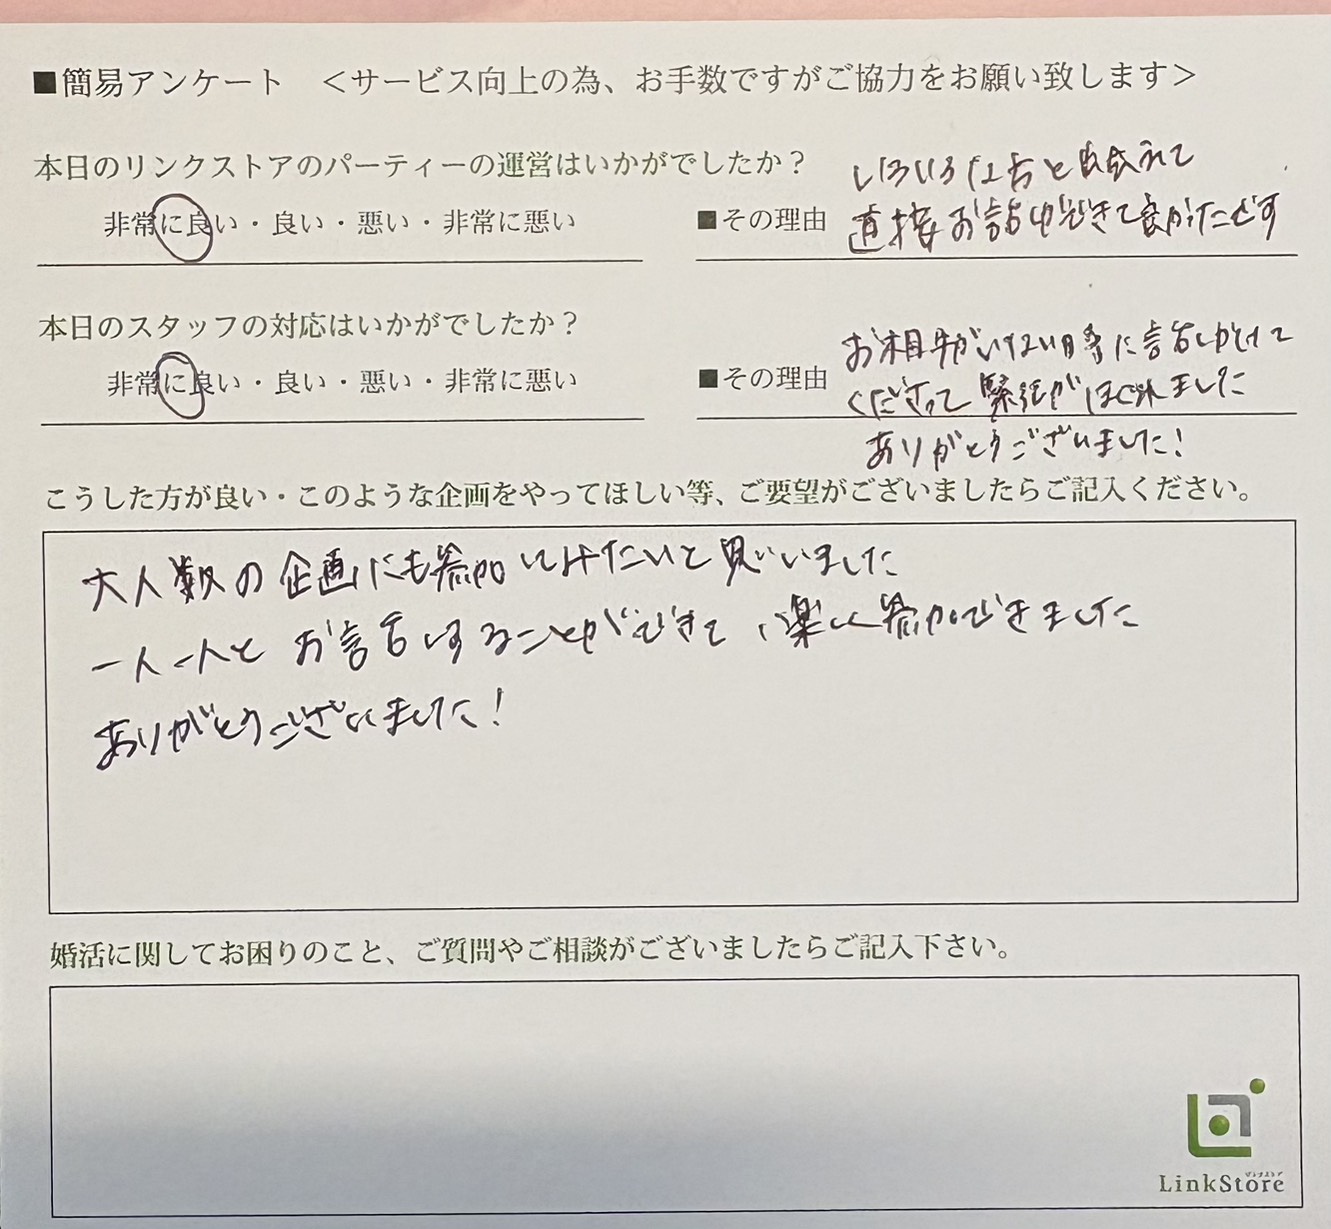 ■簡易アンケート <サービス向上の為、お手数ですがご協力をお願い致します>
本日のリンクストアのパーティーの運営はいかがでしたか?
非常に良い・良い・悪い・非常に悪い
■その理由
いろいろな方と出会えて
直接お話ができて良かったです
本日のスタッフの対応はいかがでしたか?
非常に良い・良い・悪い・非常に悪い
■その理由
お相手がいない時に話しかけて
くださって緊張がほぐれました
ありがとうございました!
こうした方が良い・このような企画をやってほしい等、ご要望がございましたらご記入ください。
大人数の企画にも参加してみたいと思いました
一人一人とお話しすることができて、楽しく参加できました
ありがとうございました!
婚活に関してお困りのこと、ご質問やご相談がございましたらご記入下さい。
リンクストア
LinkStore